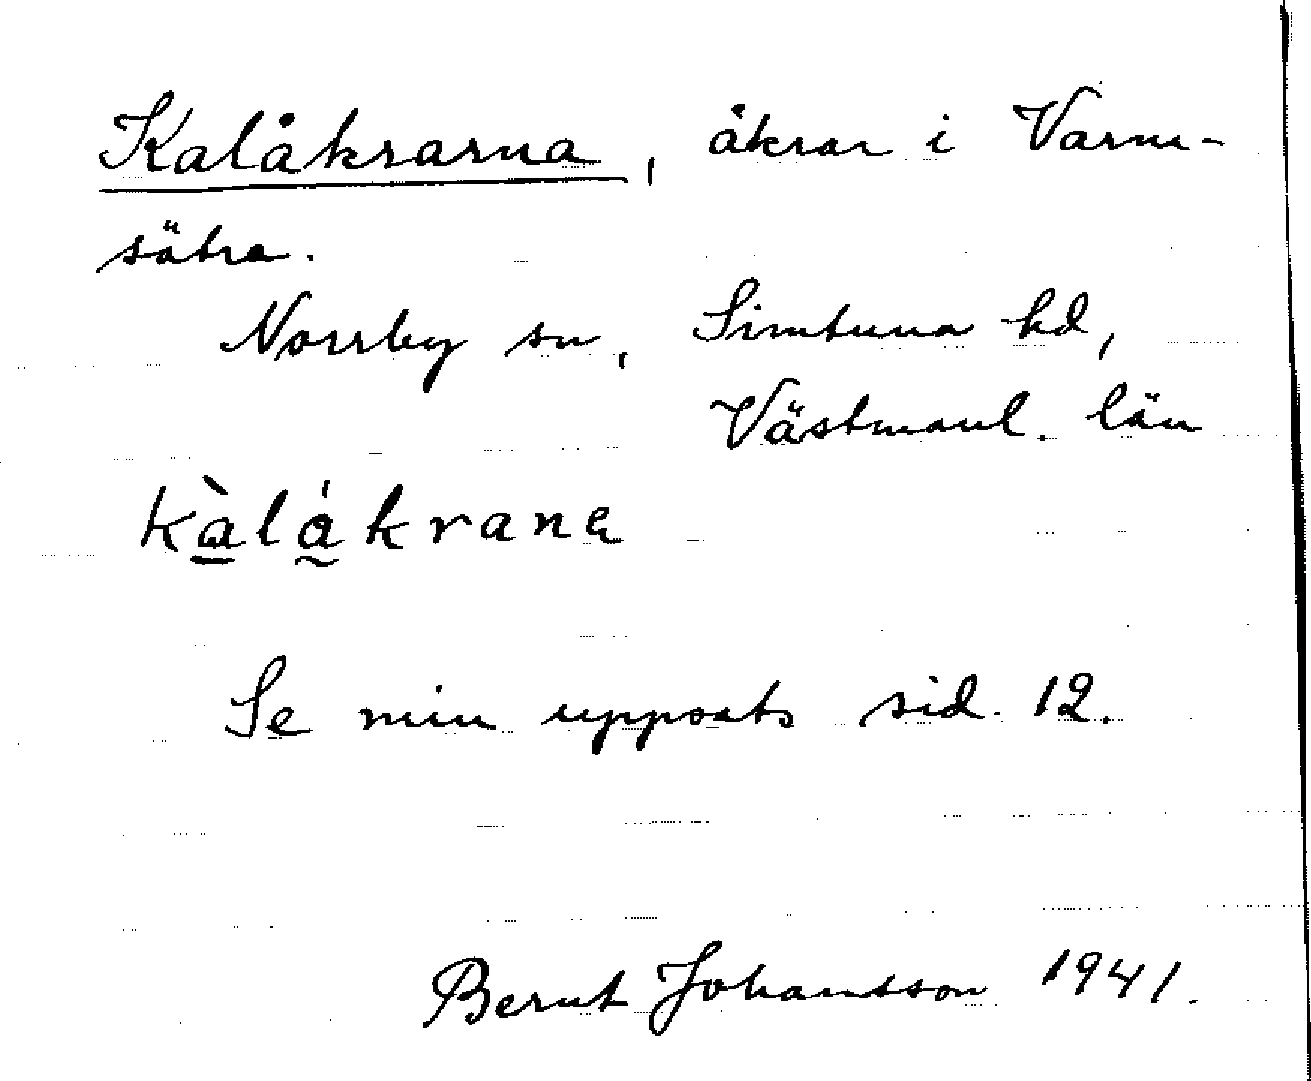 Kalåkrarna, åkrar i Varm-
sätra.
Norrby sn, Simtuna hd,
Västmanl. län
kàlåkrana
Se min uppsats sid. 12.
Bernt Johansson 1941.